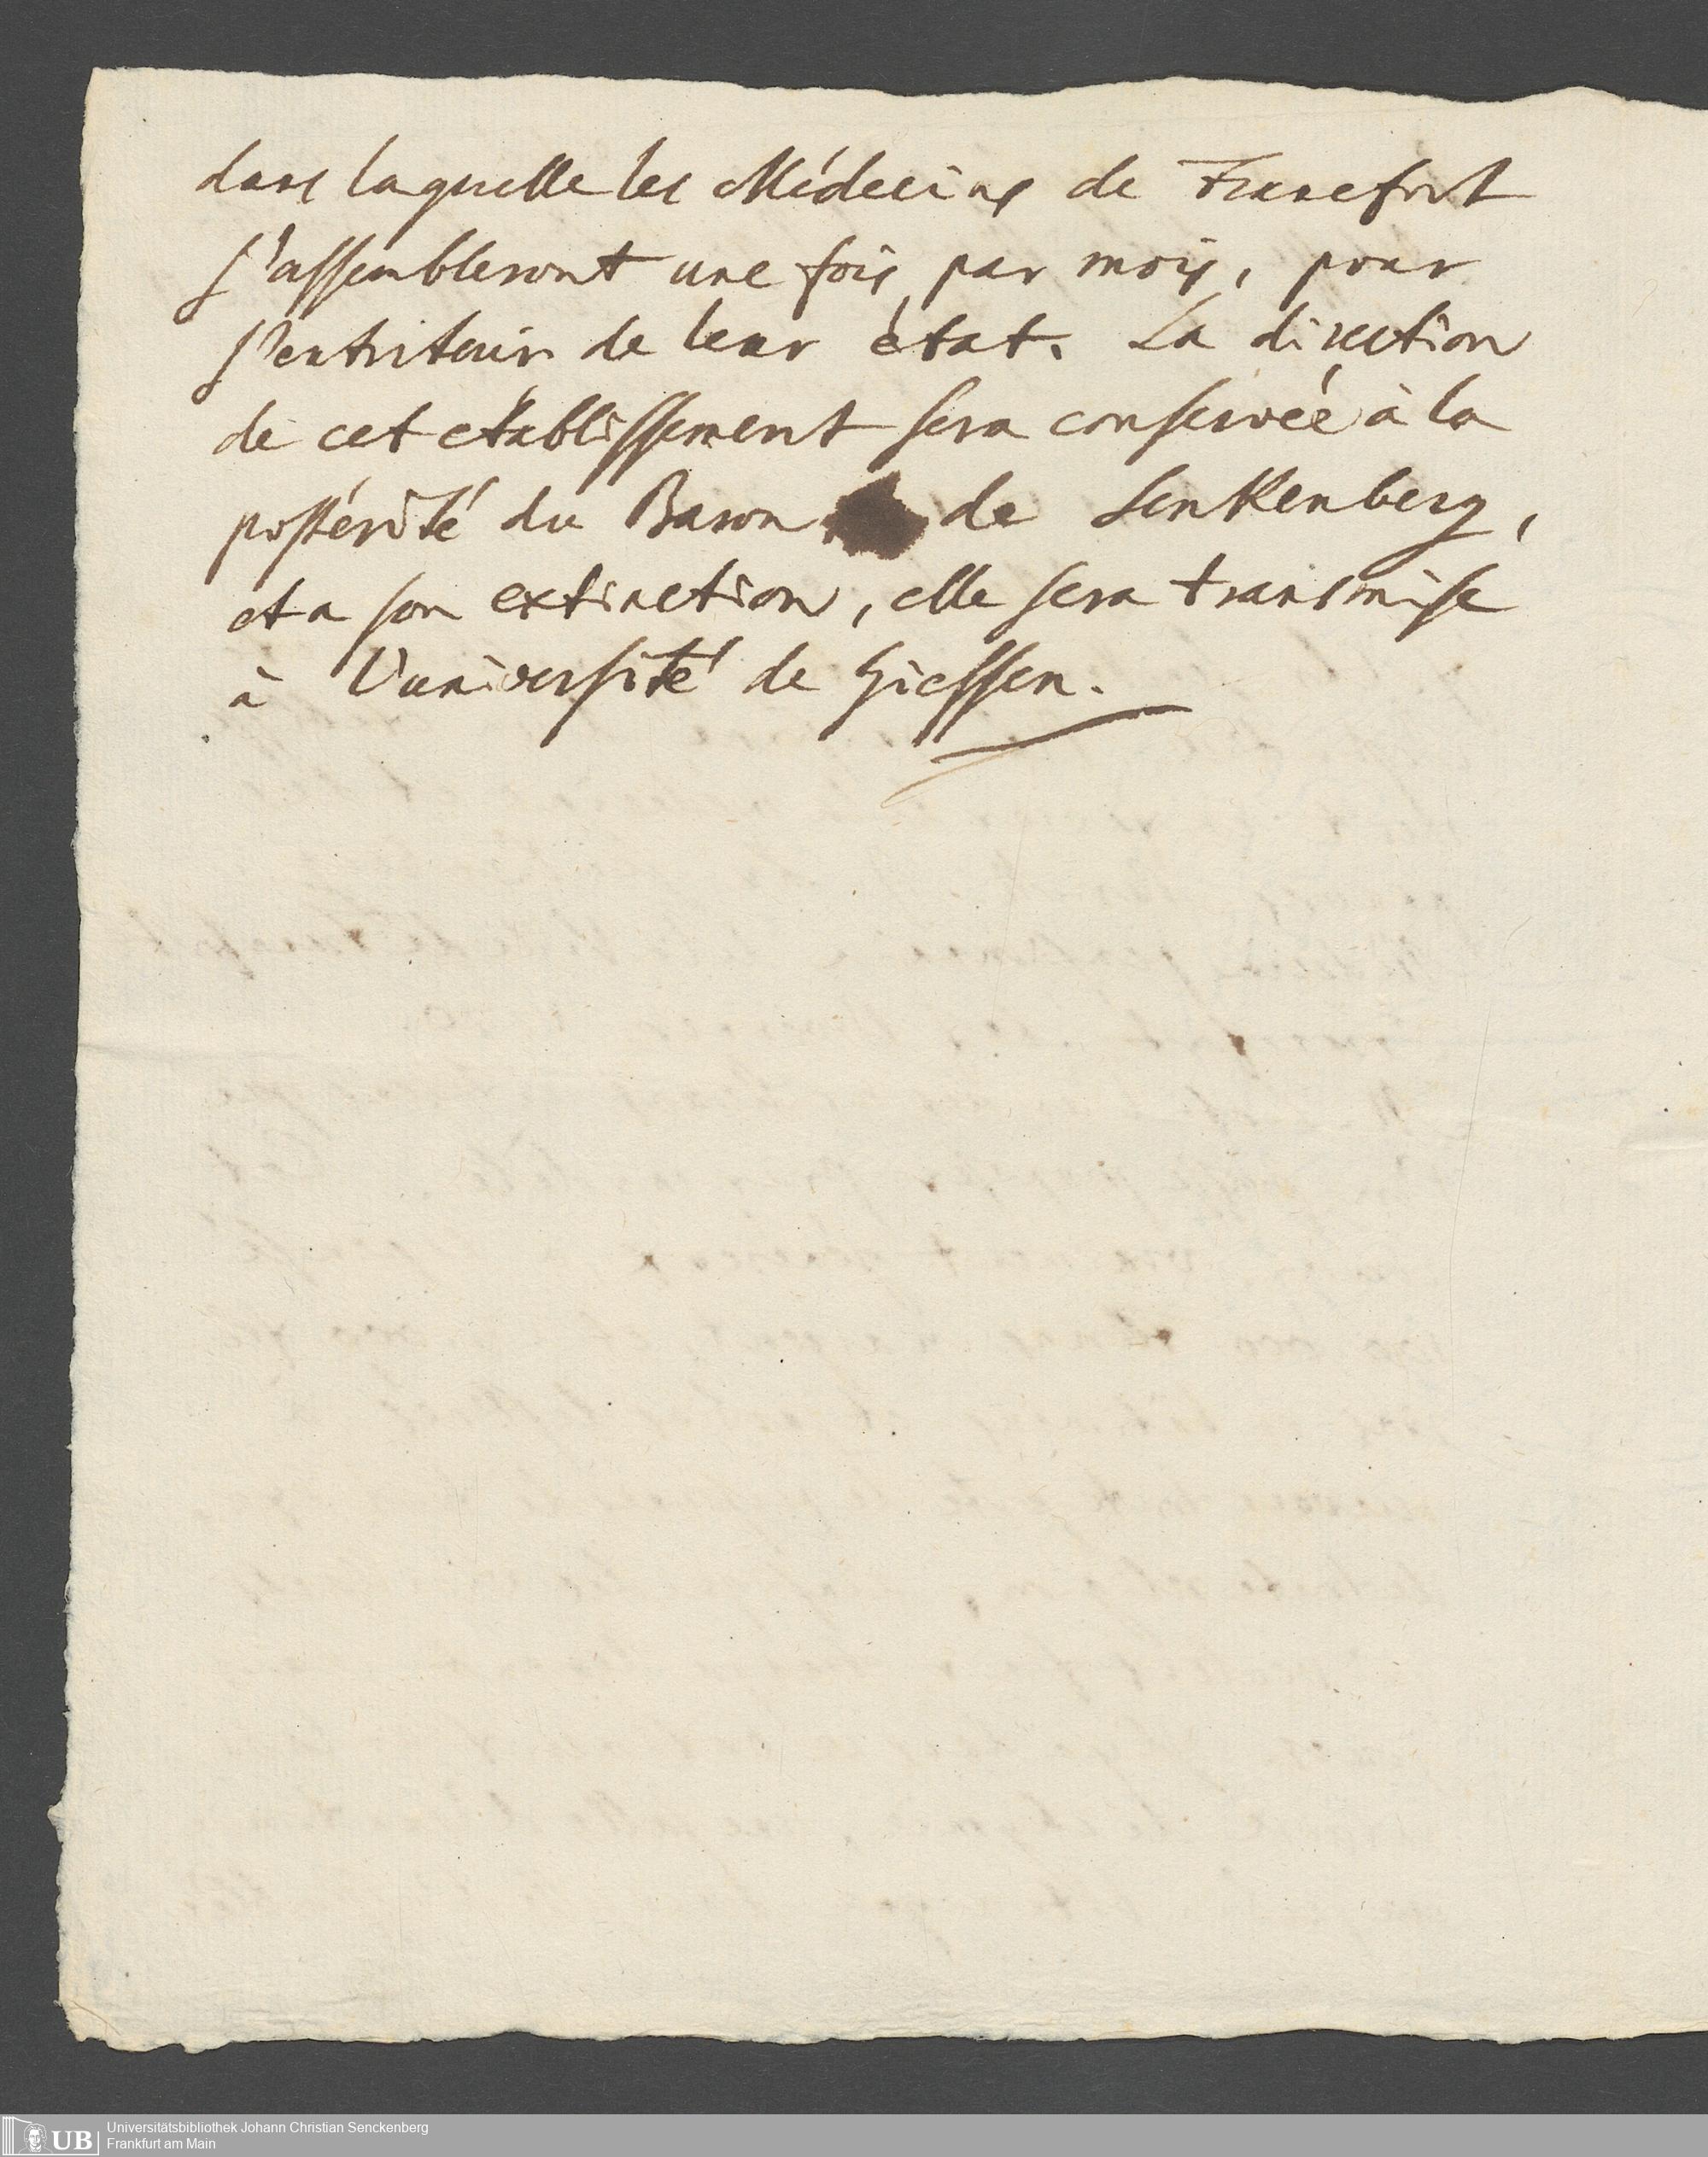 dans laquelle les Médecins de Francfort
s'assembleront une fois par mois, pour
s'entretenir de leur état. La direction
de cet etablissement sera conservée à la
postérité du Baron de Senkenberg,
et a son extinction, elle sera transmise
à l'université de Giessen.
UB
Universitätsbibliothek Johann Christian Senckenberg
Frankfurt am Main